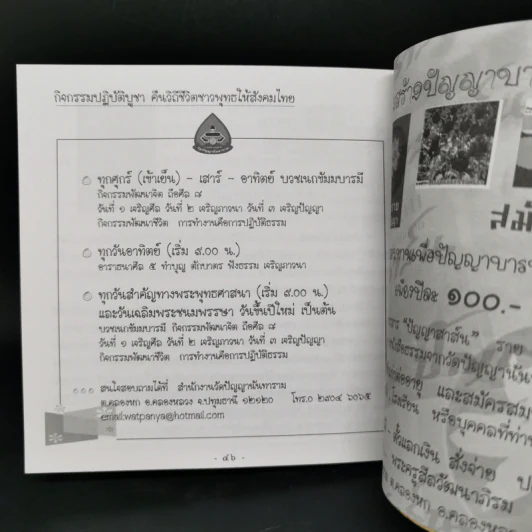 กิจกรรมปฏิบัติบูชา คืนวิถีชีวิตชาวพุทธให้สังคมไทย
ทุกศุกร์ (เข้าเย็น) - เสาร์ - อาทิตย์ บวชเนกขัมมบารมี
กิจกรรมพัฒนาจิต ถือศีล ๘
วันที่ ๑ เจริญศีล วันที่ ๒ เจริญภาวนา วันที่ ๓ เจริญปัญญา
กิจกรรมพัฒนาชีวิต การทำงานคือการปฏิบัติธรรม
ทุกวันอาทิตย์ (เริ่ม ๙.๐๐ น.)
อาราธนาศีล ๕ ทำบุญ ตักบาตร ฟังธรรม เจริญภาวนา
ทุกวันสำคัญทางพระพุทธศาสนา (เริ่ม ๙.๐๐ น.)
และวันเฉลิมพระชนมพรรษา วันขึ้นปีใหม่ เป็นต้น
บวชเนกขัมมบารมี กิจกรรมพัฒนาจิต ถือศีล ๘
วันที่ ๑ เจริญศีล วันที่ ๒ เจริญภาวนา วันที่ ๓ เจริญปัญญา
กิจกรรมพัฒนาชีวิต การทำงานคือการปฏิบัติธรรม
สนใจสอบถามได้ที่ สำนักงานวัดปัญญานันทาราม
ต.คลองหก อ.คลองหลวง จ.ปทุมธานี ๑๒๑๒๐ โทร.๐ ๒๙๐๔ ๖๐๖๕
email:watpanya@hotmail.com
- ๔๖ -
ปัญญาบา
๑๐๐.-
"ปัญญาสาส์น" ราย
และสมัครสม
หรือบุคคลที่ทำ
- ตั๋วแลกเงิน สั่งจ่าย
พระครูสีลวัฒนาภิรม
ต.คลองหก อ.คลองห